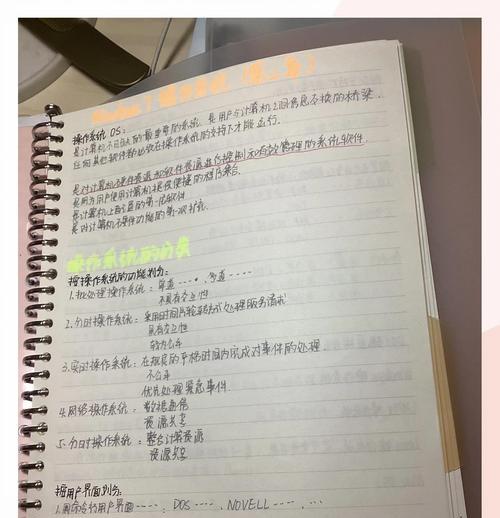 Windows 7 操作系统（第二章）
操作系统 OS：
是计算机不可缺少的最重要的系统，是用户与计算机之间信息交换的桥梁．
任何其他软件都必须在操作系统的支持下才能运行．
是对计算机硬件资源和软件资源进行控制和有效管理的系统软件．
是用为用户使用计算机提供便捷的程序集合．
是计算机上配置的第一层软件
是对计算机硬件功能的第一次扩充．
操作系统的分类
按操作系统的功能划分：
1.批处理操作系统：单道‥‥，多道‥‥
不具有交互性
2.分时操作系统：采用时间片轮转方式处理服务请求
具有交互性
3.实时操作系统：在规定的严格时间内完成对事件的处理．
优先处理紧急事件．
4.网络操作系统：数据通信
资源共享
5.分时操作系统：整合计算资源
资源共享
按用户界面划分：
1.用命令行用户界面‥‥：DOS ‥‥、NOVELL ‥‥、…